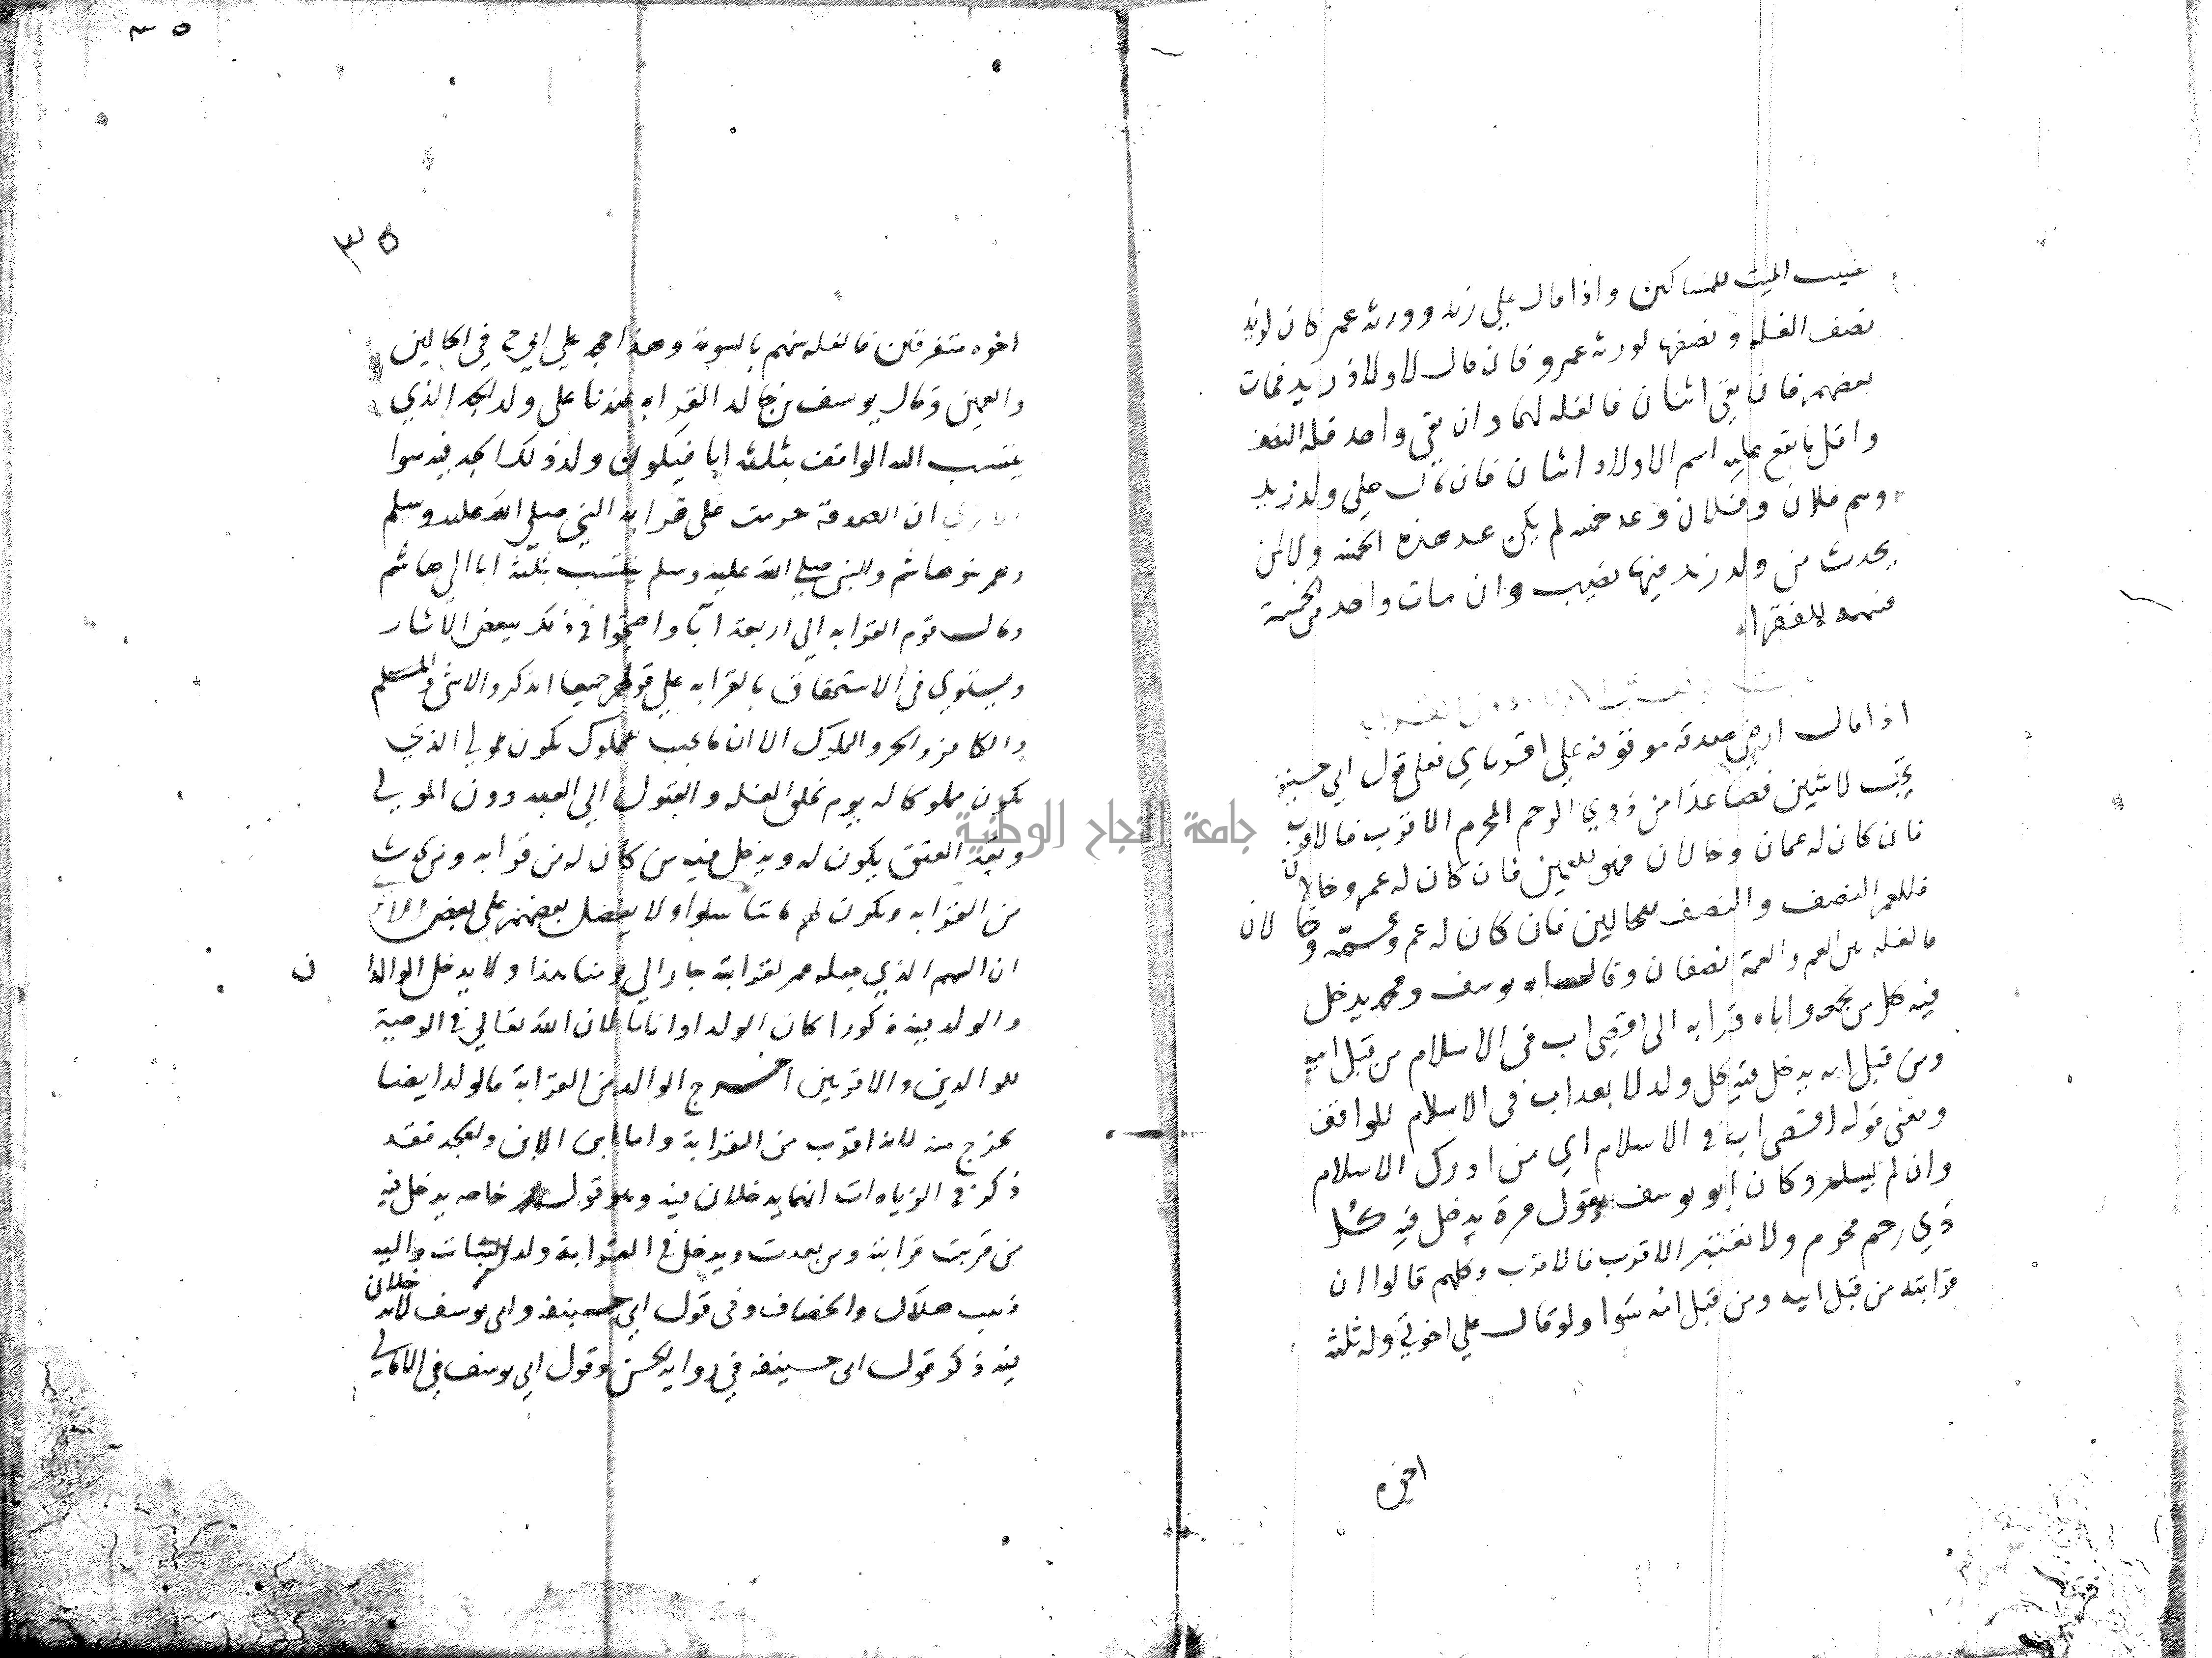 نصيب الميت للمساكين واذا قال علي زيد وورثه عمر كان لزيد
نصف الغله ونصفها لورثه عمرو فان قال لاولاد زيد فمات
بعضهم فان بقي اثنان فالغله لهما وان بقي واحد فله النصف
واقل ما يقع عليه اسم الاولاد اثنان فان قال علي ولد زيد
وهم فلان وفلان وعد خمسه لم يكن عد هذه الخمسه ولا لمن
يحدث من ولد زيد فيها نصيب وان مات واحد من الخمسة
فسهمه للفقرا
اذا قال ارضي صدقه موقوفه علي اقربائي فعلي قول ابي حنيفة
يجب لاثنين فصاعدا من ذوي الرحم المحرم الاقرب فالاقرب
فان كان له عمان وخالان فهو للعمين فان كان له عم وخالان
فللعم النصف والنصف للخالين فان كان له عم وعمة وخالان
فالغله بين العم والعمة نصفان وقال ابو يوسف ومحمد يدخل
فيه كل من يجمعه واباه قرابه الى اقصى اب في الاسلام من قبل ابيه
ومن قبل امه يدخل فيه كل ولد لابعد اب في الاسلام للواقف
ومعنى قوله اقصى اب في الاسلام اي من ادرك الاسلام
وان لم يسلم وكان ابو يوسف يقول مرة يدخل فيه كل
ذي رحم محرم ولا نعتبر الاقرب فالاقرب وكلهم قالوا ان
قرابته من قبل ابيه ومن قبل امه سوا ولو قال علي اخوتي وله ثلثه
اخوه
٣٥
٣٥
اخوه متفرقين فالغله بينهم بالسوية وهذا حجه علي ابي ح في الخالين
والعمين وقال يوسف بن خالد القرابه عندنا على ولد الجد الذي
ينتسب اليه الواقف بثلثه ابا فيكون ولد ذلك الجد فيه سوا
الا تري ان الصدقة حرمت على قرابه النبي صلى الله عليه وسلم
وهم بنو هاشم والنبي صلي الله عليه وسلم ينتسب بثلثه ابا الى هاشم
وقال قوم القرابه الى اربعة آبا واحتجوا في ذلك ببعض الآثار
ويستوي في الاستحقاق بالقرابه علي قولهم جميعا الذكر والانثى والمسلم
والكافر والحر والمملوك الا ان ما يجب للمملوك يكون للمولى الذي
يكون مملوكا له يوم تخلق الغله والقبول الى العبد دون المولى
وبعد العتق يكون له ويدخل فيه من كان له من قرابه ومن يحدث
من القرابه ويكون لهم ما تناسلوا ولا يفضل بعضهم علي بعض
ان السهم الذي جعله عمر لقرابته جار الى يومنا هذا ولا يدخل الوالدان
والولد فيه ذكورا كان الولد او اناثا لان الله تعالي في الوصية
للوالدين والاقربين اخرج الوالد من القرابة فالولد ايضا
يخرج منه لانه اقرب من القرابة واما ابن الابن والجد فقد
ذكر في الزيادات انهما يدخلان فيه وهو قول محمد خاصه يدخل فيه
من قربت قرابته ومن بعدت ويدخل في القرابة ولد البنات واليه
ذهب هلال والخصاف وفي قول ابي حنيفه وابي يوسف لا يدخلان
فيه ذكر قول ابي حنيفه في روايه الحسن وقول ابي يوسف في الامالي
جامعة النجاح الوطنية